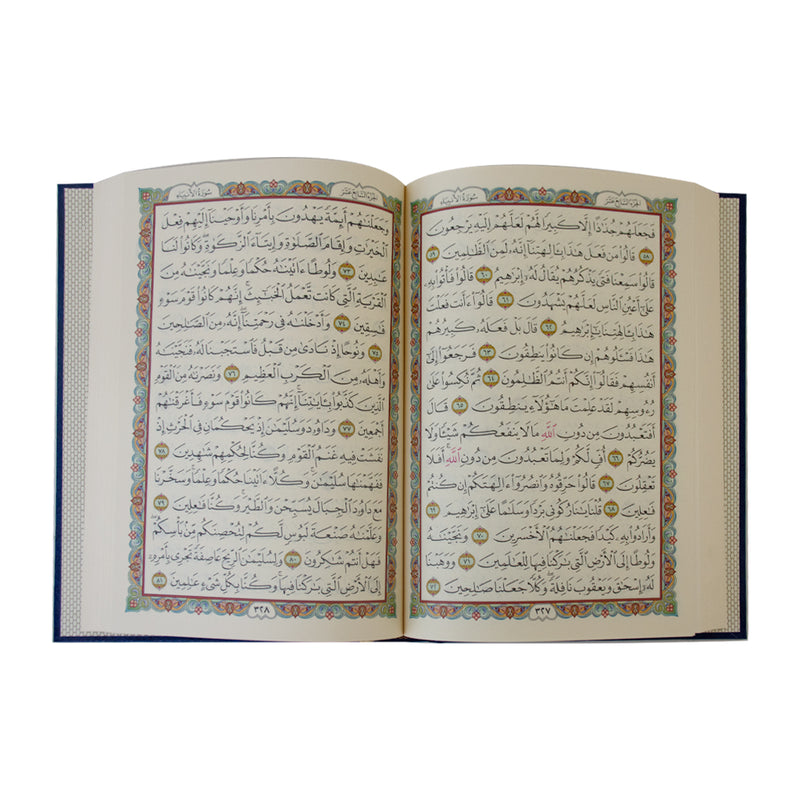 الجُزْءُ السَّابِعُ عَشَرَ سُورَةُ الأَنْبِيَاءِ
فَجَعَلَهُمْ جُذَٰذًا إِلَّا كَبِيرًا لَّهُمْ لَعَلَّهُمْ إِلَيْهِ يَرْجِعُونَ
٥٨ قَالُوا۟ مَن فَعَلَ هَٰذَا بِـَٔالِهَتِنَآ إِنَّهُۥ لَمِنَ ٱلظَّٰلِمِينَ ٥٩
قَالُوا۟ سَمِعْنَا فَتًى يَذْكُرُهُمْ يُقَالُ لَهُۥٓ إِبْرَٰهِيمُ ٦٠ قَالُوا۟ فَأْتُوا۟ بِهِۦ
عَلَىٰٓ أَعْيُنِ ٱلنَّاسِ لَعَلَّهُمْ يَشْهَدُونَ ٦١ قَالُوٓا۟ ءَأَنتَ فَعَلْتَ
هَٰذَا بِـَٔالِهَتِنَا يَٰٓإِبْرَٰهِيمُ ٦٢ قَالَ بَلْ فَعَلَهُۥ كَبِيرُهُمْ
هَٰذَا فَسْـَٔلُوهُمْ إِن كَانُوا۟ يَنطِقُونَ ٦٣ فَرَجَعُوٓا۟ إِلَىٰٓ
أَنفُسِهِمْ فَقَالُوٓا۟ إِنَّكُمْ أَنتُمُ ٱلظَّٰلِمُونَ ٦٤ ثُمَّ نُكِسُوا۟ عَلَىٰ
رُءُوسِهِمْ لَقَدْ عَلِمْتَ مَا هَٰٓؤُلَآءِ يَنطِقُونَ ٦٥ قَالَ
أَفَتَعْبُدُونَ مِن دُونِ ٱللَّهِ مَا لَا يَنفَعُكُمْ شَيْـًٔا وَلَا
يَضُرُّكُمْ ٦٦ أُفٍّ لَّكُمْ وَلِمَا تَعْبُدُونَ مِن دُونِ ٱللَّهِ أَفَلَا
تَعْقِلُونَ ٦٧ قَالُوا۟ حَرِّقُوهُ وَٱنصُرُوٓا۟ ءَالِهَتَكُمْ إِن كُنتُمْ
فَٰعِلِينَ ٦٨ قُلْنَا يَٰنَارُ كُونِى بَرْدًا وَسَلَٰمًا عَلَىٰٓ إِبْرَٰهِيمَ ٦٩
وَأَرَادُوا۟ بِهِۦ كَيْدًا فَجَعَلْنَٰهُمُ ٱلْأَخْسَرِينَ ٧٠ وَنَجَّيْنَٰهُ
وَلُوطًا إِلَى ٱلْأَرْضِ ٱلَّتِى بَٰرَكْنَا فِيهَا لِلْعَٰلَمِينَ ٧١ وَوَهَبْنَا
لَهُۥٓ إِسْحَٰقَ وَيَعْقُوبَ نَافِلَةً وَكُلًّا جَعَلْنَا صَٰلِحِينَ ٧٢
٣٢٧
الجُزْءُ السَّابِعُ عَشَرَ سُورَةُ الأَنْبِيَاءِ
وَجَعَلْنَٰهُمْ أَئِمَّةً يَهْدُونَ بِأَمْرِنَا وَأَوْحَيْنَآ إِلَيْهِمْ فِعْلَ
ٱلْخَيْرَٰتِ وَإِقَامَ ٱلصَّلَوٰةِ وَإِيتَآءَ ٱلزَّكَوٰةِ وَكَانُوا۟ لَنَا
عَٰبِدِينَ ٧٣ وَلُوطًا ءَاتَيْنَٰهُ حُكْمًا وَعِلْمًا وَنَجَّيْنَٰهُ مِنَ
ٱلْقَرْيَةِ ٱلَّتِى كَانَت تَّعْمَلُ ٱلْخَبَٰٓئِثَ إِنَّهُمْ كَانُوا۟ قَوْمَ سَوْءٍ
فَٰسِقِينَ ٧٤ وَأَدْخَلْنَٰهُ فِى رَحْمَتِنَآ إِنَّهُۥ مِنَ ٱلصَّٰلِحِينَ
٧٥ وَنُوحًا إِذْ نَادَىٰ مِن قَبْلُ فَٱسْتَجَبْنَا لَهُۥ فَنَجَّيْنَٰهُ
وَأَهْلَهُۥ مِنَ ٱلْكَرْبِ ٱلْعَظِيمِ ٧٦ وَنَصَرْنَٰهُ مِنَ ٱلْقَوْمِ
ٱلَّذِينَ كَذَّبُوا۟ بِـَٔايَٰتِنَآ إِنَّهُمْ كَانُوا۟ قَوْمَ سَوْءٍ فَأَغْرَقْنَٰهُمْ
أَجْمَعِينَ ٧٧ وَدَاوُۥدَ وَسُلَيْمَٰنَ إِذْ يَحْكُمَانِ فِى ٱلْحَرْثِ إِذْ
نَفَشَتْ فِيهِ غَنَمُ ٱلْقَوْمِ وَكُنَّا لِحُكْمِهِمْ شَٰهِدِينَ ٧٨
فَفَهَّمْنَٰهَا سُلَيْمَٰنَ وَكُلًّا ءَاتَيْنَا حُكْمًا وَعِلْمًا وَسَخَّرْنَا
مَعَ دَاوُۥدَ ٱلْجِبَالَ يُسَبِّحْنَ وَٱلطَّيْرَ وَكُنَّا فَٰعِلِينَ ٧٩
وَعَلَّمْنَٰهُ صَنْعَةَ لَبُوسٍ لَّكُمْ لِتُحْصِنَكُم مِّنۢ بَأْسِكُمْ
فَهَلْ أَنتُمْ شَٰكِرُونَ ٨٠ وَلِسُلَيْمَٰنَ ٱلرِّيحَ عَاصِفَةً تَجْرِى بِأَمْرِهِۦٓ
إِلَى ٱلْأَرْضِ ٱلَّتِى بَٰرَكْنَا فِيهَا وَكُنَّا بِكُلِّ شَىْءٍ عَٰلِمِينَ ٨١
٣٢٨